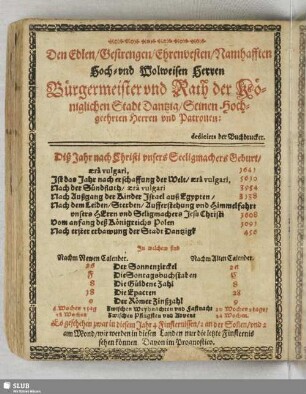 Den Edlen/Gestrengen/Ehrenvesten/Namhafften
Hoch-vnd Wolweisen Herren
Bürgermeister vnd Rath der Kö-
niglichen Stadt Dantzig/Seinen Hoch-
geehrten Herren vnd Patronen:
dediciret der Buchdrucker.
Diß Jahr nach Christi vnsers Seeligmachers Geburt/
ærâ vulgari,
Ist das Jahr nach erschaffung der Welt/ ærâ vulgari
Nach der Sündfluth/ ærâ vulgari
Nach Außgang der Kinder Israel auß Egypten/
Nach dem Leiden/Sterben/Aufferstehung vnd Himmelfahrt
vnsers HErrn vnd Seligmachers Jesu Christi 1608
Vom anfang deß Königreichs Polen
Nach erster erbawung der Stadt Dantzigk
In welchem sind
Nachm Newen Calender. Nachm Alten Calender.
Der Sonnenzirckel
F Die Sontagsbuchstaben C
8 Die Güldene Zahl 8
Die Epacten 28
9 Der Römer Zinßzahl 9
zwischen Weyhnachten vnd Fastnacht
zwischen Pfingsten vnd Advent
Es geschehen zwar in diesem Jahr 4 Finsternissen/2 an der Sonnen/vnd 2
am Mond/wir werden in diesen Landen nur die letzte Finsternis
sehen können Davon im Prognostico.
SLUB